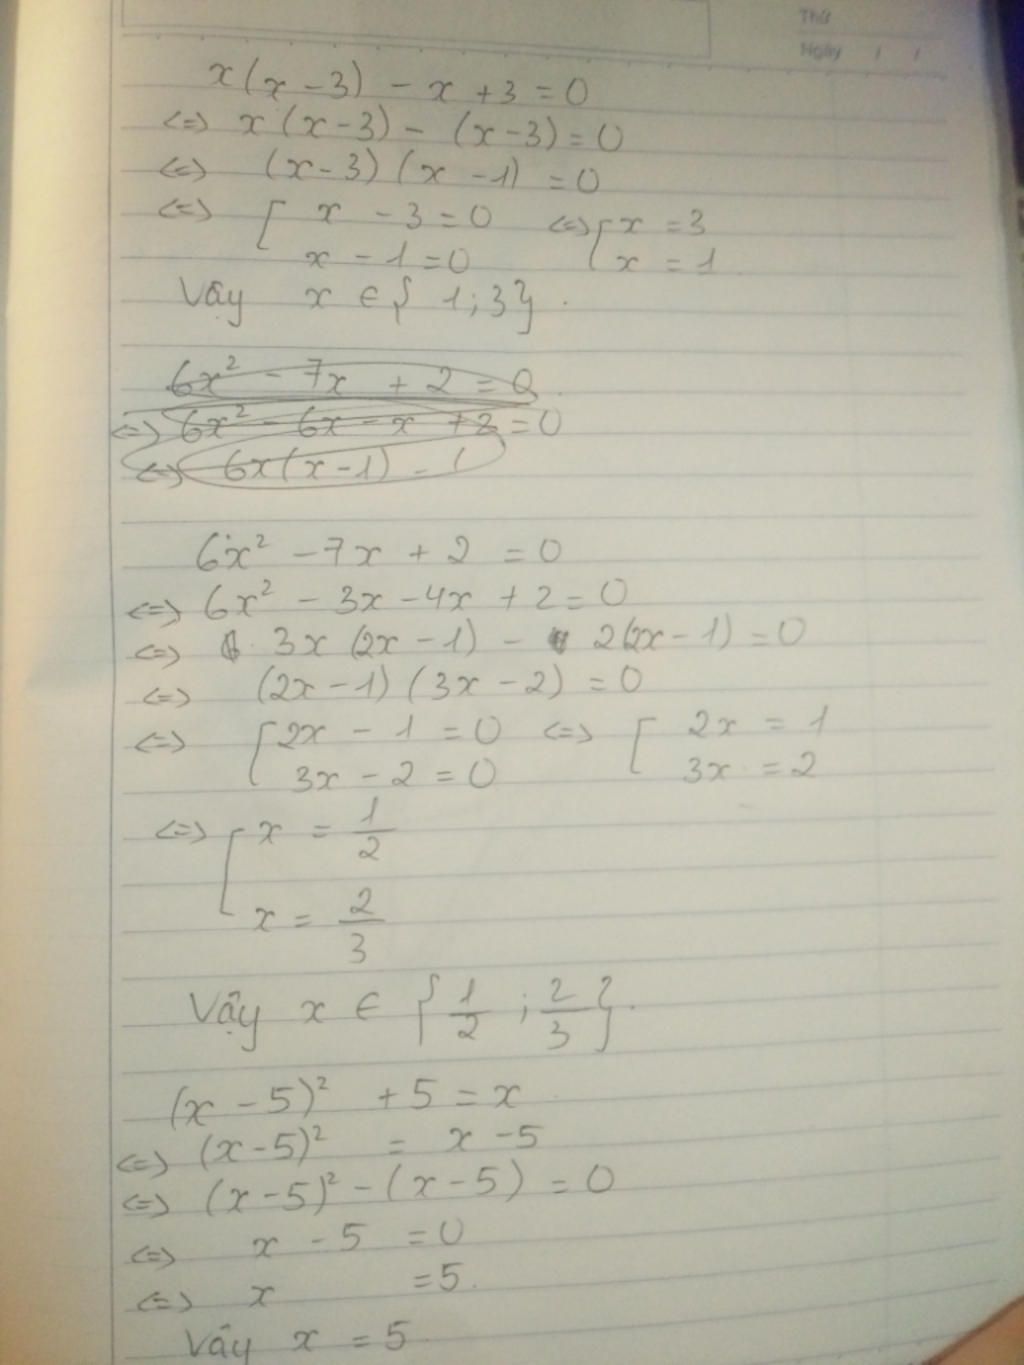 Thứ
Ngày / /
x(x-3) - x + 3 = 0
<=> x(x-3) - (x-3) = 0
<=> (x-3)(x-1) = 0
<=> [ x - 3 = 0 <=> [ x = 3
x - 1 = 0 x = 1
Vây x ∈ { 1; 3}.
6x² - 7x + 2 = 0
<=> 6x² - 6x - x + 2 = 0
<=> 6x(x-1) - (
6x² - 7x + 2 = 0
<=> 6x² - 3x - 4x + 2 = 0
<=> 3x (2x - 1) - 2(2x - 1) = 0
<=> (2x - 1)(3x - 2) = 0
<=> [ 2x - 1 = 0 <=> [ 2x = 1
3x - 2 = 0 3x = 2
<=> [ x = 1/2
x = 2/3
Vậy x ∈ { 1/2 ; 2/3 }.
(x - 5)² + 5 = x
<=> (x-5)² = x - 5
<=> (x-5)² - (x-5) = 0
<=> x - 5 = 0
<=> x = 5.
Vây x = 5